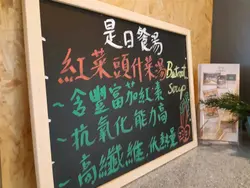 是日餐湯
紅菜頭什菜湯
Beetroot
Soup
~含豐富茄紅素
~抗氧化能力高
~高纖維,低熱量